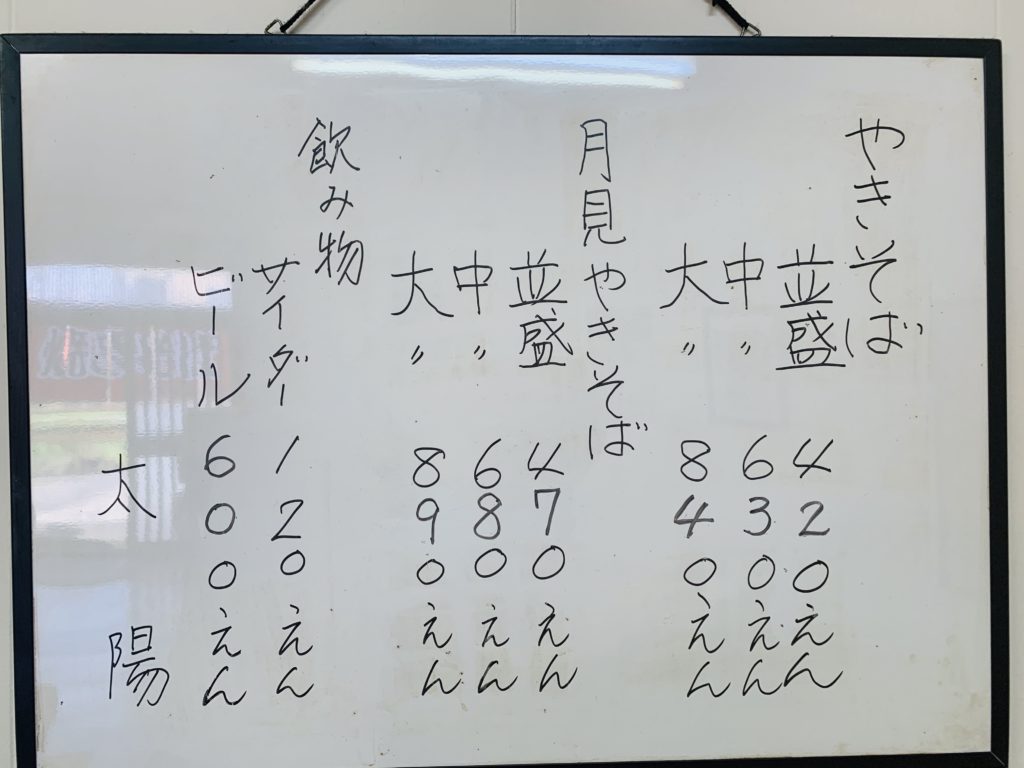 やきそば
並盛 420えん
中〃 630えん
大〃 840えん
月見やきそば
並盛 470えん
中〃 680えん
大〃 890えん
飲み物
サイダー 120えん
ビール 600えん
太陽